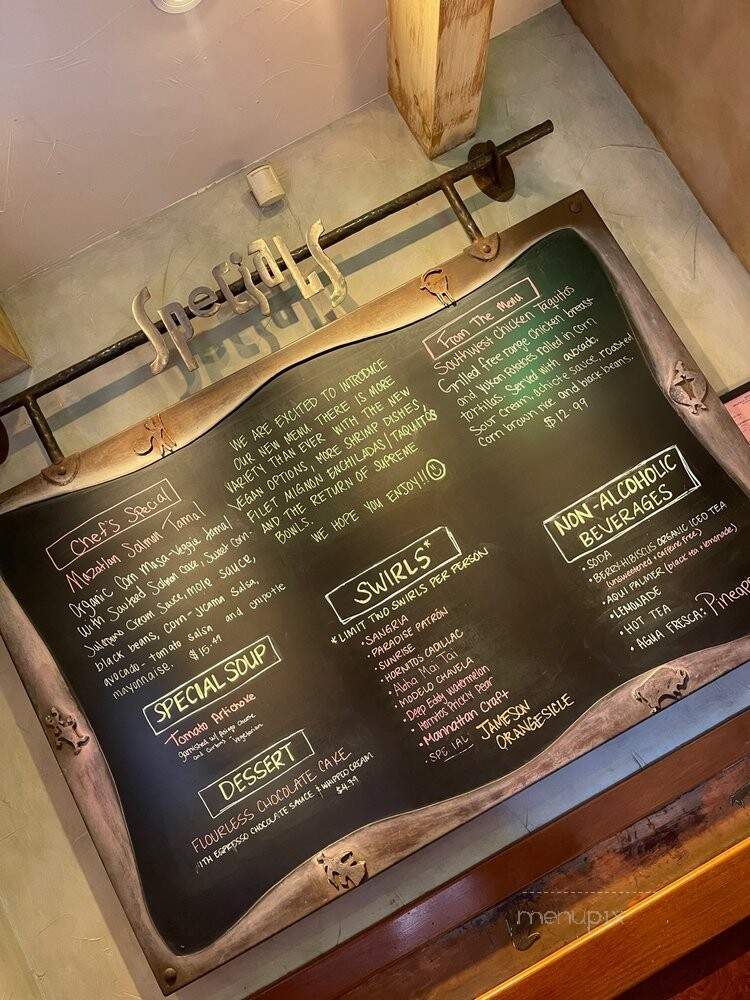 Specials
WE ARE EXCITED TO INTRODUCE
OUR NEW MENU THERE IS MORE
VARIETY THAN EVER WITH THE NEW
VEGAN OPTIONS, MORE SHRIMP DISHES
FILET MIGNON ENCHILADAS/TAQUITOS
AND THE RETURN OF SUPREME
BOWLS.
WE HOPE YOU ENJOY!!
From The Menu
Southwest Chicken Taquitos
Grilled free range chicken breast
and Yukon Potatoes rolled in corn
tortillas. Served with avocado,
Sour cream, achiote sauce, roasted
corn brown rice and black beans.
$12.99
Chef's Special
Mazatlan Salmon Tamal
Organic Corn Masa-Veggie tamal
with Sauteed Salmon cake, sweet corn-
Jalepano Cream Sauce, more sauce,
black beans, corn-jicama salsa,
avocado-tomato salsa and chipotle
mayonnaise. $15.49
SPECIAL SOUP
Tomato Artichoke
garnished w/ Asiago Cheese
and croutons - Vegetarian
DESSERT
FLOURLESS CHOCOLATE CAKE
WITH ESPRESSO CHOCOLATE SAUCE & WHIPPED CREAM
$4.39
SWIRLS*
*LIMIT TWO SWIRLS PER PERSON
• SANGRIA
• PARADISE PATRÓN
• SUNRISE
• HORNITOS CADILLAC
• Aloha Mai Tai
• MODELO CHAVELA
• Deep Eddy Watermelon
• Hornitos Prickly Pear
• Manhattan Craft
• SPECIAL JAMESON
ORANGESICLE
NON-ALCOHOLIC
BEVERAGES
• SODA
• BERRY HIBISCUS ORGANIC ICED TEA
(unsweetened + caffeine free)
• AQUI PALMER (black tea + lemonade)
• LEMONADE
• HOT TEA
• AGUA FRESCA: Pineapp
menupix